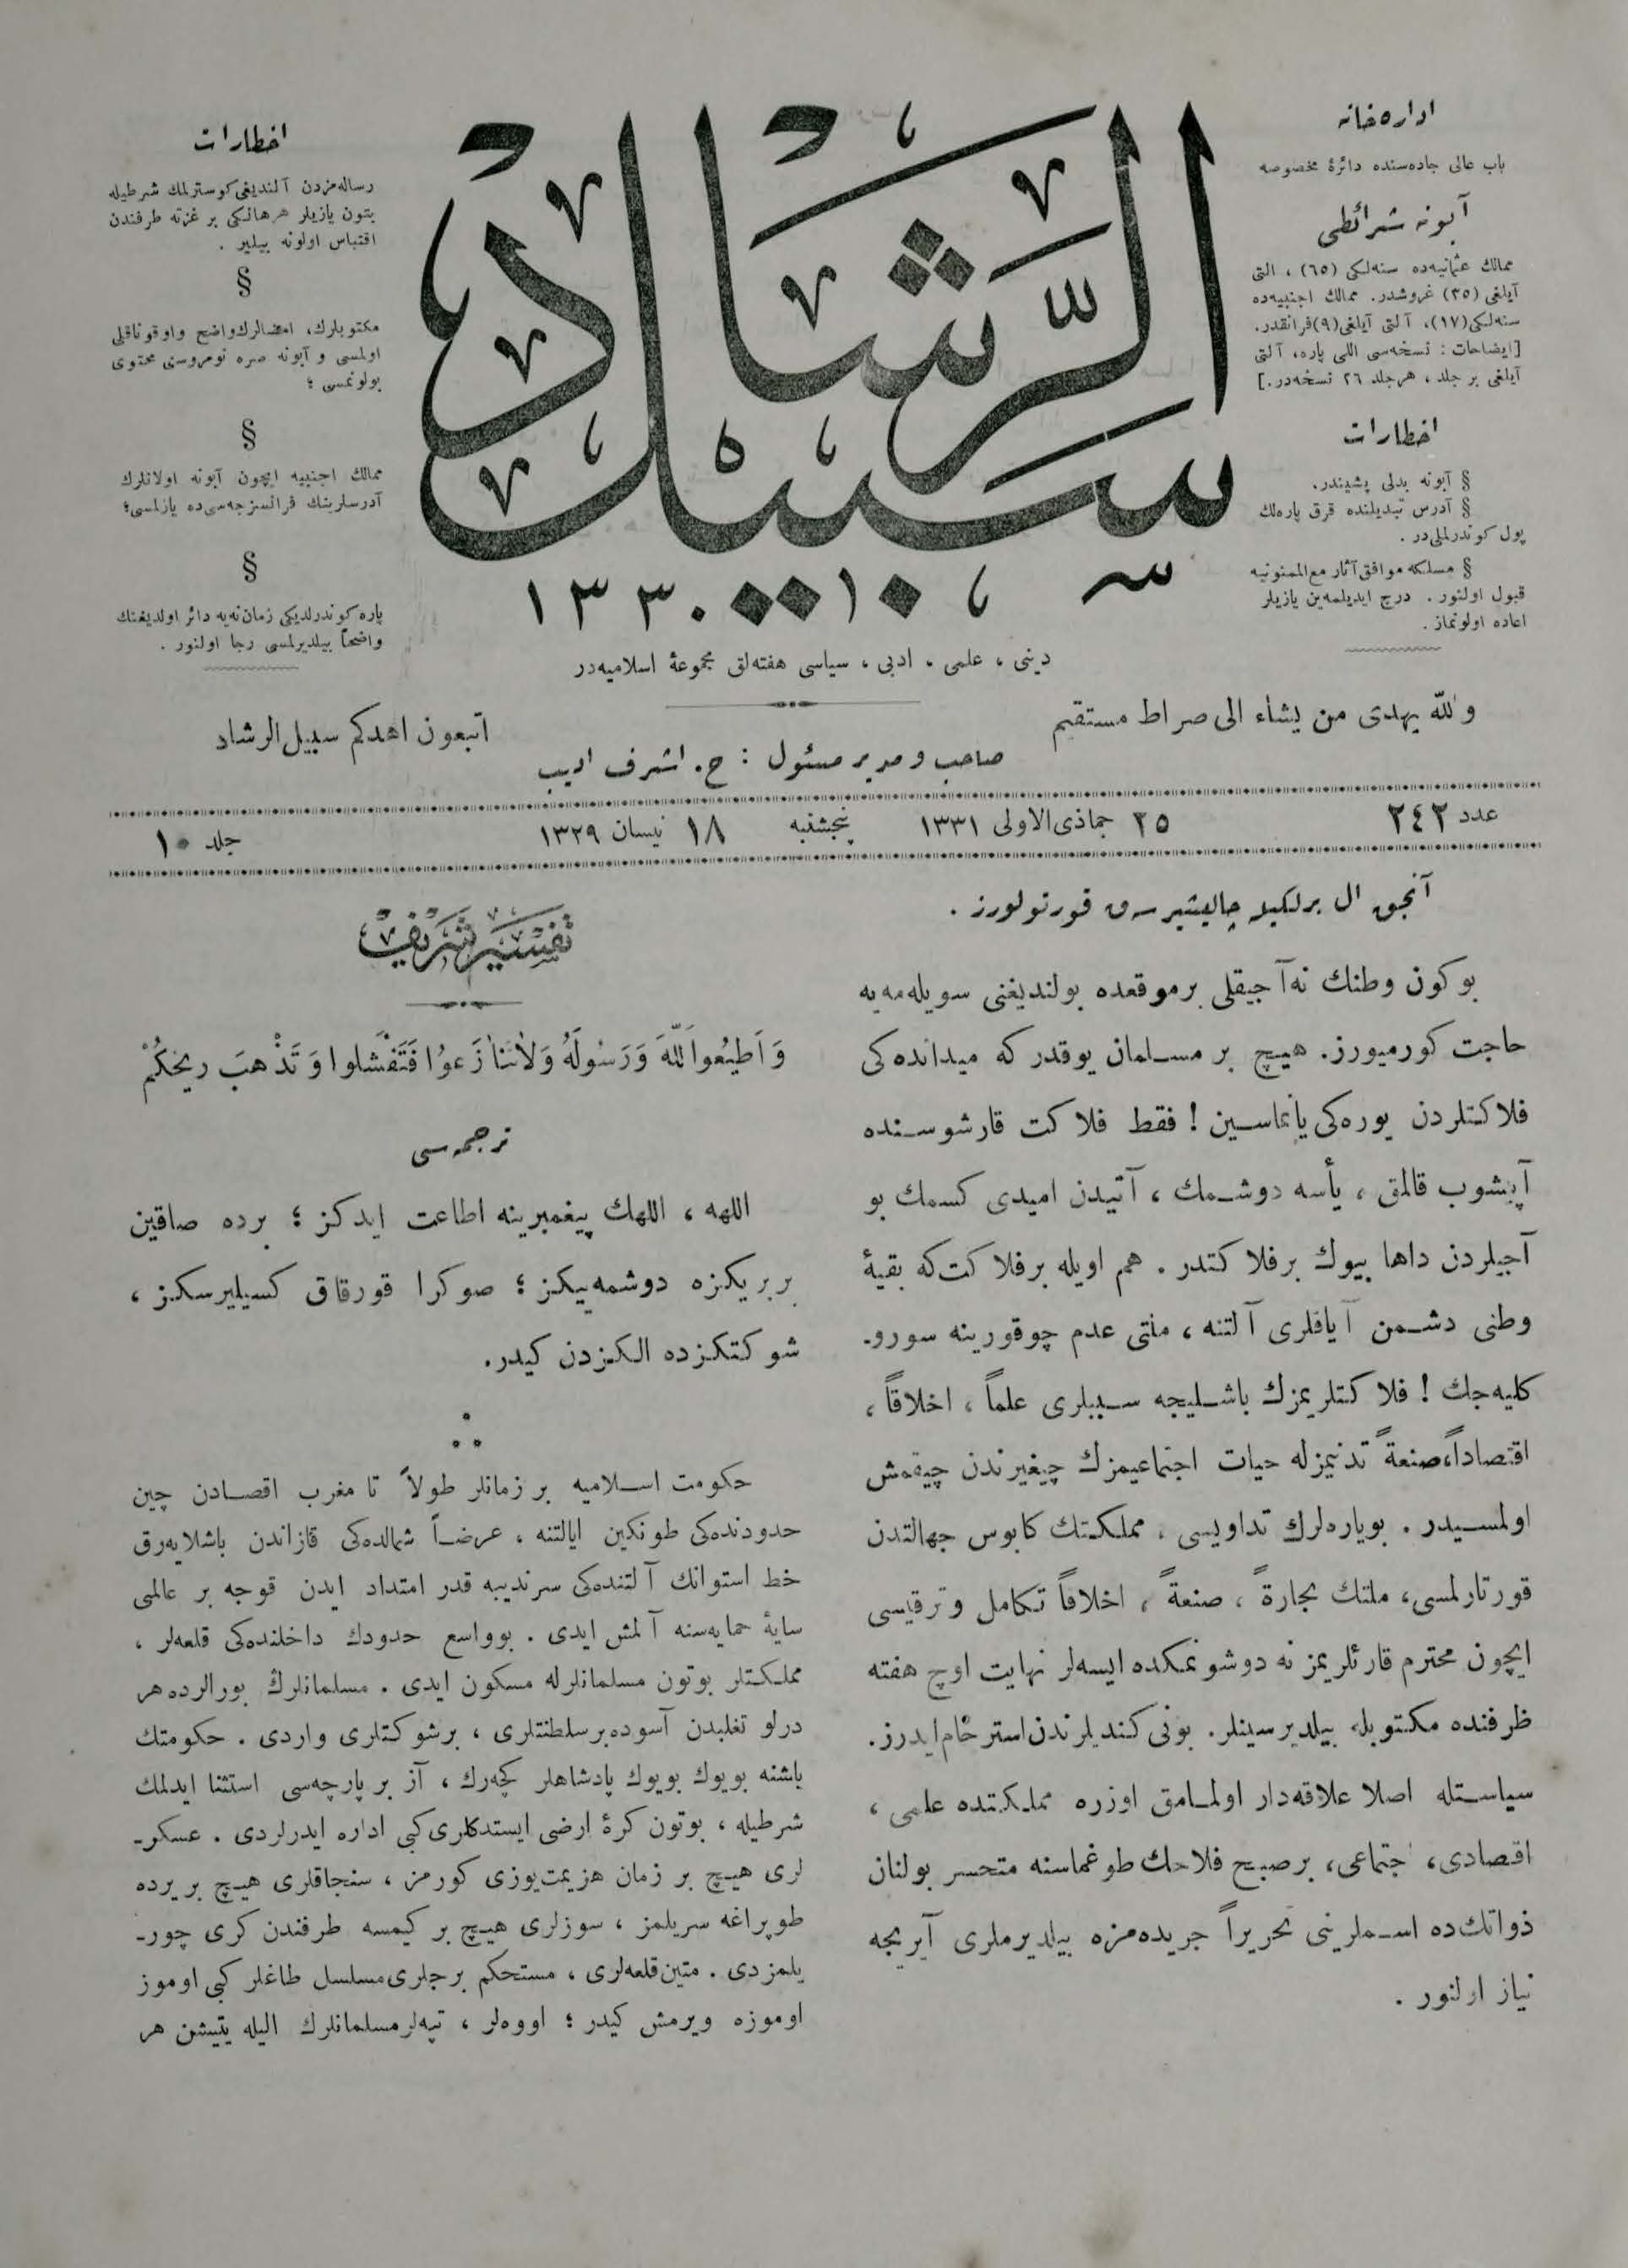 اداره‌خانه
باب عالی جاده‌سنده دائرهٔ مخصوصه
آبونه شرائطی
ممالك عثمانیه‌ده سنه‌لكی (٦٥) ، التی
آیلغی (٣٥) غروشدر. ممالك اجنبیه‌ده
سنه‌لكی (١٧)، آلتی آیلغی (٩) فرانقدر.
[ایضاحات : نسخه‌سی اللی پاره، آلتی
آیلغی بر جلد ، هر جلد ٢٦ نسخه‌در.]
اخطارات
§ آبونه بدلی پشیندر.
§ آدرس تبدیلنده قرق پاره‌لك
پول كوندرلملی‌در .
§ مسلكه موافق آثار مع‌الممنونیه
قبول اولنور . درج ایدیلمه‌ین یازیلر
اعاده اولونماز .
سبیل الرّشاد
١٣٣٠
دینی ، علمی ، ادبی ، سیاسی هفته‌لق مجموعهٔ اسلامیه‌در
اخطارات
رساله‌مزدن آلندیغی كوسترلمك شرطیله
بتون یازیلر هرهانكی بر غزته طرفندن
اقتباس اولونه بیلیر .
§
مكتوبلرك، امضالرك واضح و اوقوناقلی
اولمسی و آبونه صره نومروسنی محتوی
بولونمسی ؛
§
ممالك اجنبیه ایچون آبونه اولانلرك
آدرسلرینك فرانسزجه‌سی‌ده یازلمسی؛
§
پاره كوندرلدیكی زمان نه‌یه دائر اولدیغنك
واضحاً بیلدیرلمسی رجا اولنور .
والله یهدی من یشاء الی صراط مستقیم
اتبعون اهدكم سبیل الرشاد
صاحب و مدیر مسئول : ح. اشرف ادیب
عدد ٢٤٢
٢٥ جماذی‌الاولی ١٣٣١
پنجشنبه
١٨ نیسان ١٣٢٩
جلد ١٠
آنجق ال برلكیله چالیشیرسه‌ق قورتولورز .
بوكون وطنك نه آجیقلی بر موقعده بولندیغنی سویله‌مه‌یه
حاجت كورمیورز. هیچ بر مسلمان یوقدر كه میدانده‌كی
فلاكتلردن یوره‌كی یانماسین ! فقط فلاكت قارشوسنده
آپیشوب قالمق ، یأسه دوشمك ، آتیدن امیدی كسمك بو
آجیلردن داها بیوك بر فلاكتدر . هم اویله بر فلاكت كه بقیهٔ
وطنی دشمن آیاقلری آلتنه ، ملتی عدم چوقورینه سورو-
كلیه‌جك ! فلاكتلریمزك باشلیجه سببلری علماً ، اخلاقاً ،
اقتصاداً، صنعةً تدنیمزله حیات اجتماعیمزك چیغیرندن چیقمش
اولمسیدر . بویاره‌لرك تداویسی ، مملكتك كابوس جهالتدن
قورتارلمسی، ملتك تجارةً ، صنعةً ، اخلاقاً تكامل و ترقیسی
ایچون محترم قارئلریمز نه دوشونمكده ایسه‌لر نهایت اوچ هفته
ظرفنده مكتوبله بیلدیرسینلر. بونی كندیلرندن استرحام ایدرز.
سیاستله اصلا علاقه‌دار اولمامق اوزره مملكتده علمی ،
اقتصادی، اجتماعی، بر صبح فلاحك طوغماسنه متحسر بولنان
ذواتك‌ده اسملرینی تحریراً جریده‌مزه بیلدیرملری آیریجه
نیاز اولنور .
تفسیر شریف
وَاَطیعُوا اللّٰهَ وَرَسُولَهُ وَلاٰتَنٰازَعوُا فَتَفْشَلوا وَتَذْهَبَ ریحُكُمْ
ترجمه‌سی
اللهه ، اللهك پیغمبرینه اطاعت ایدكز ؛ برده صاقین
بربریكزه دوشمه‌ییكز ؛ صوكرا قورقاق كسیلیرسكز ،
شوكتكزده الكزدن كیدر.
حكومت اسلامیه بر زمانلر طولاً تا مغرب اقصادن چین
حدودنده‌كی طونكین ایالتنه ، عرضاً شمالده‌كی قازاندن باشلایه‌رق
خط استوانك آلتنده‌كی سرندیبه قدر امتداد ایدن قوجه بر عالمی
سایهٔ حمایه‌سنه آلمش ایدی . بوواسع حدودك داخلنده‌كی قلعه‌لر ،
مملكتلر بوتون مسلمانلرله مسكون ایدی . مسلمانلرك بورالرده هر
درلو تغلبدن آسوده بر سلطنتلری ، بر شوكتلری واردی . حكومتك
باشنه بویوك بویوك پادشاهلر كچه‌رك ، آز بر پارچه‌سی استثنا ایدلمك
شرطیله ، بوتون كرهٔ ارضی ایستدكلری كبی اداره ایدرلردی . عسكر-
لری هیچ بر زمان هزیمت یوزی كورمز ، سنجاقلری هیچ بر یرده
طوپراغه سریلمز ، سوزلری هیچ بر كیمسه طرفندن كری چور-
یلمزدی . متین قلعه‌لری ، مستحكم برجلری مسلسل طاغلر كبی اوموز
اوموزه ویرمش كیدر ؛ اووه‌لر ، تپه‌لر مسلمانلرك الیله یتیشن هر